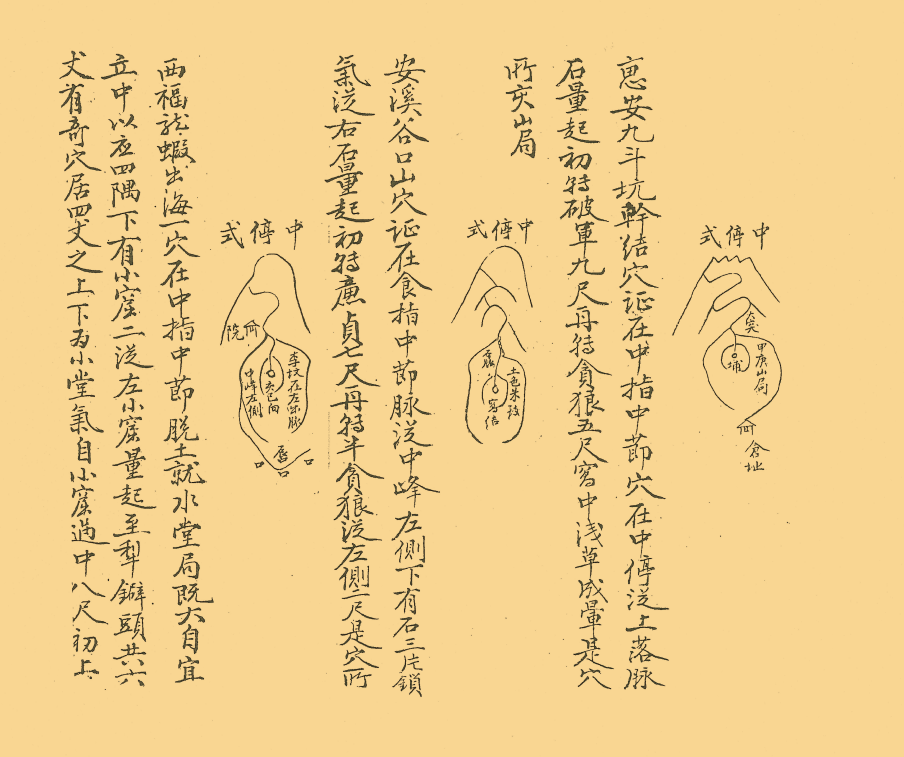 惠安九斗坑幹结穴証在中指中節穴在中停從土落脉
石量起初特破軍九尺再特貪狼五尺窩中浅草成暈是穴
所亥山局
中停式
甲庚山局
埔
倉址
安溪谷口山穴証在食指中節脉從中峰左側下有石三片鎖
氣從右石量起初特廉貞七尺再特半貪狼從左側二尺是穴所
中停式
土色朱紋
窩结
中停式
李坟在左邪脉
中峰左側
院
唇
口
口
口
西福龍蝦出海一穴在中指中節脱土就水堂局既大自宜
立中以应四隅下有小窟二從左小窟量起至犁鐴頭共六
丈有奇穴居四丈之上下為小堂氣自小窟過中八尺初上